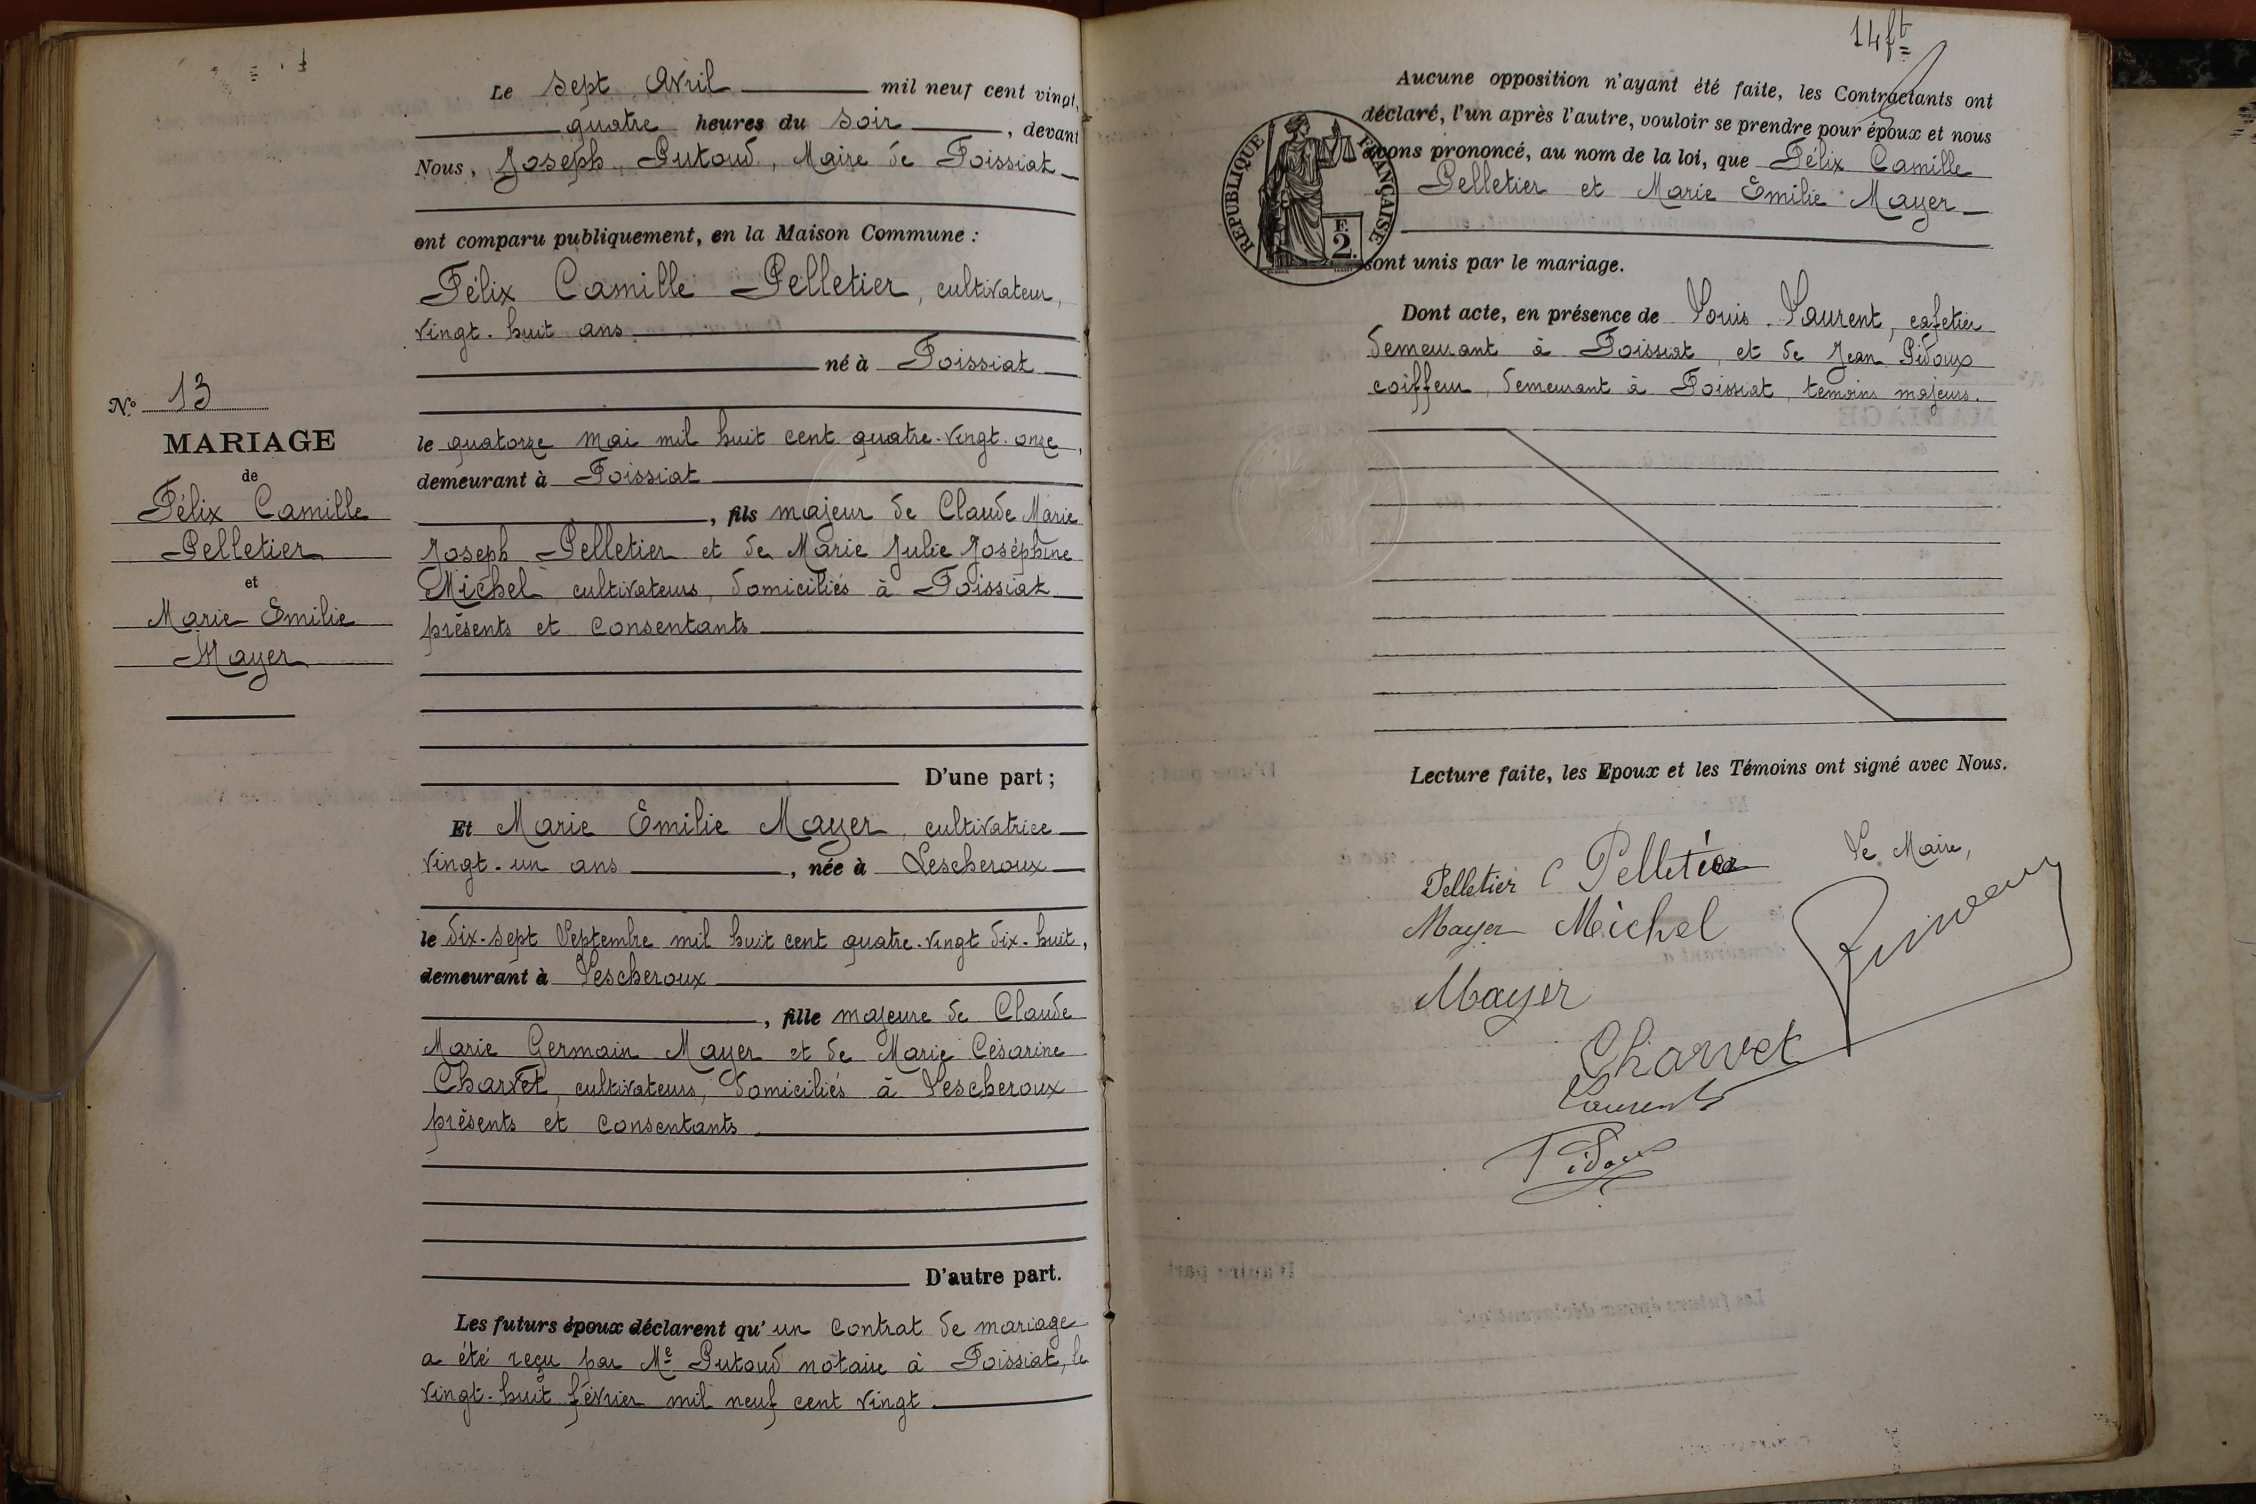 Le sept Avril mil neuf cent vingt,
quatre heures du soir, devant
Nous, Joseph Putoud, Maire de Foissiat
ont comparu publiquement, en la Maison Commune :
Félix Camille Pelletier, cultivateur,
vingt-huit ans
né à Foissiat
le quatorze mai mil huit cent quatre-vingt-onze,
demeurant à Foissiat
, fils majeur de Claude Marie
Joseph Pelletier et de Marie Julie Joséphine
Michel cultivateurs, domiciliés à Foissiat
présents et consentants
D'une part ;
Nº 13
MARIAGE
de
Félix Camille
Pelletier
et
Marie Emilie
Mayer
Et Marie Emilie Mayer, cultivatrice
vingt-un ans, née à Lescheroux
le dix-sept Septembre mil huit cent quatre-vingt dix-huit,
demeurant à Lescheroux
, fille majeure de Claude
Marie Germain Mayer et de Marie Césarine
Charvet, cultivateurs, domiciliés à Lescheroux
présents et consentants
D'autre part.
Les futurs époux déclarent qu'un contrat de mariage
a été reçu par Me Putoud notaire à Foissiat, le
vingt-huit février mil neuf cent vingt
14 ft
Aucune opposition n'ayant été faite, les Contractants ont
déclaré, l'un après l'autre, vouloir se prendre pour époux et nous
avons prononcé, au nom de la loi, que Félix Camille
Pelletier et Marie Emilie Mayer
sont unis par le mariage.
RÉPUBLIQUE FRANÇAISE
F.
2.
Dont acte, en présence de Louis Laurent, cafetier
demeurant à Foissiat, et de Jean Pidoux
coiffeur, demeurant à Foissiat, temoins majeurs.
Lecture faite, les Epoux et les Témoins ont signé avec Nous.
Le Maire,
Pelletier C Pelletier
Mayer Michel
Mayer
Charvet
Laurent
Pidoux